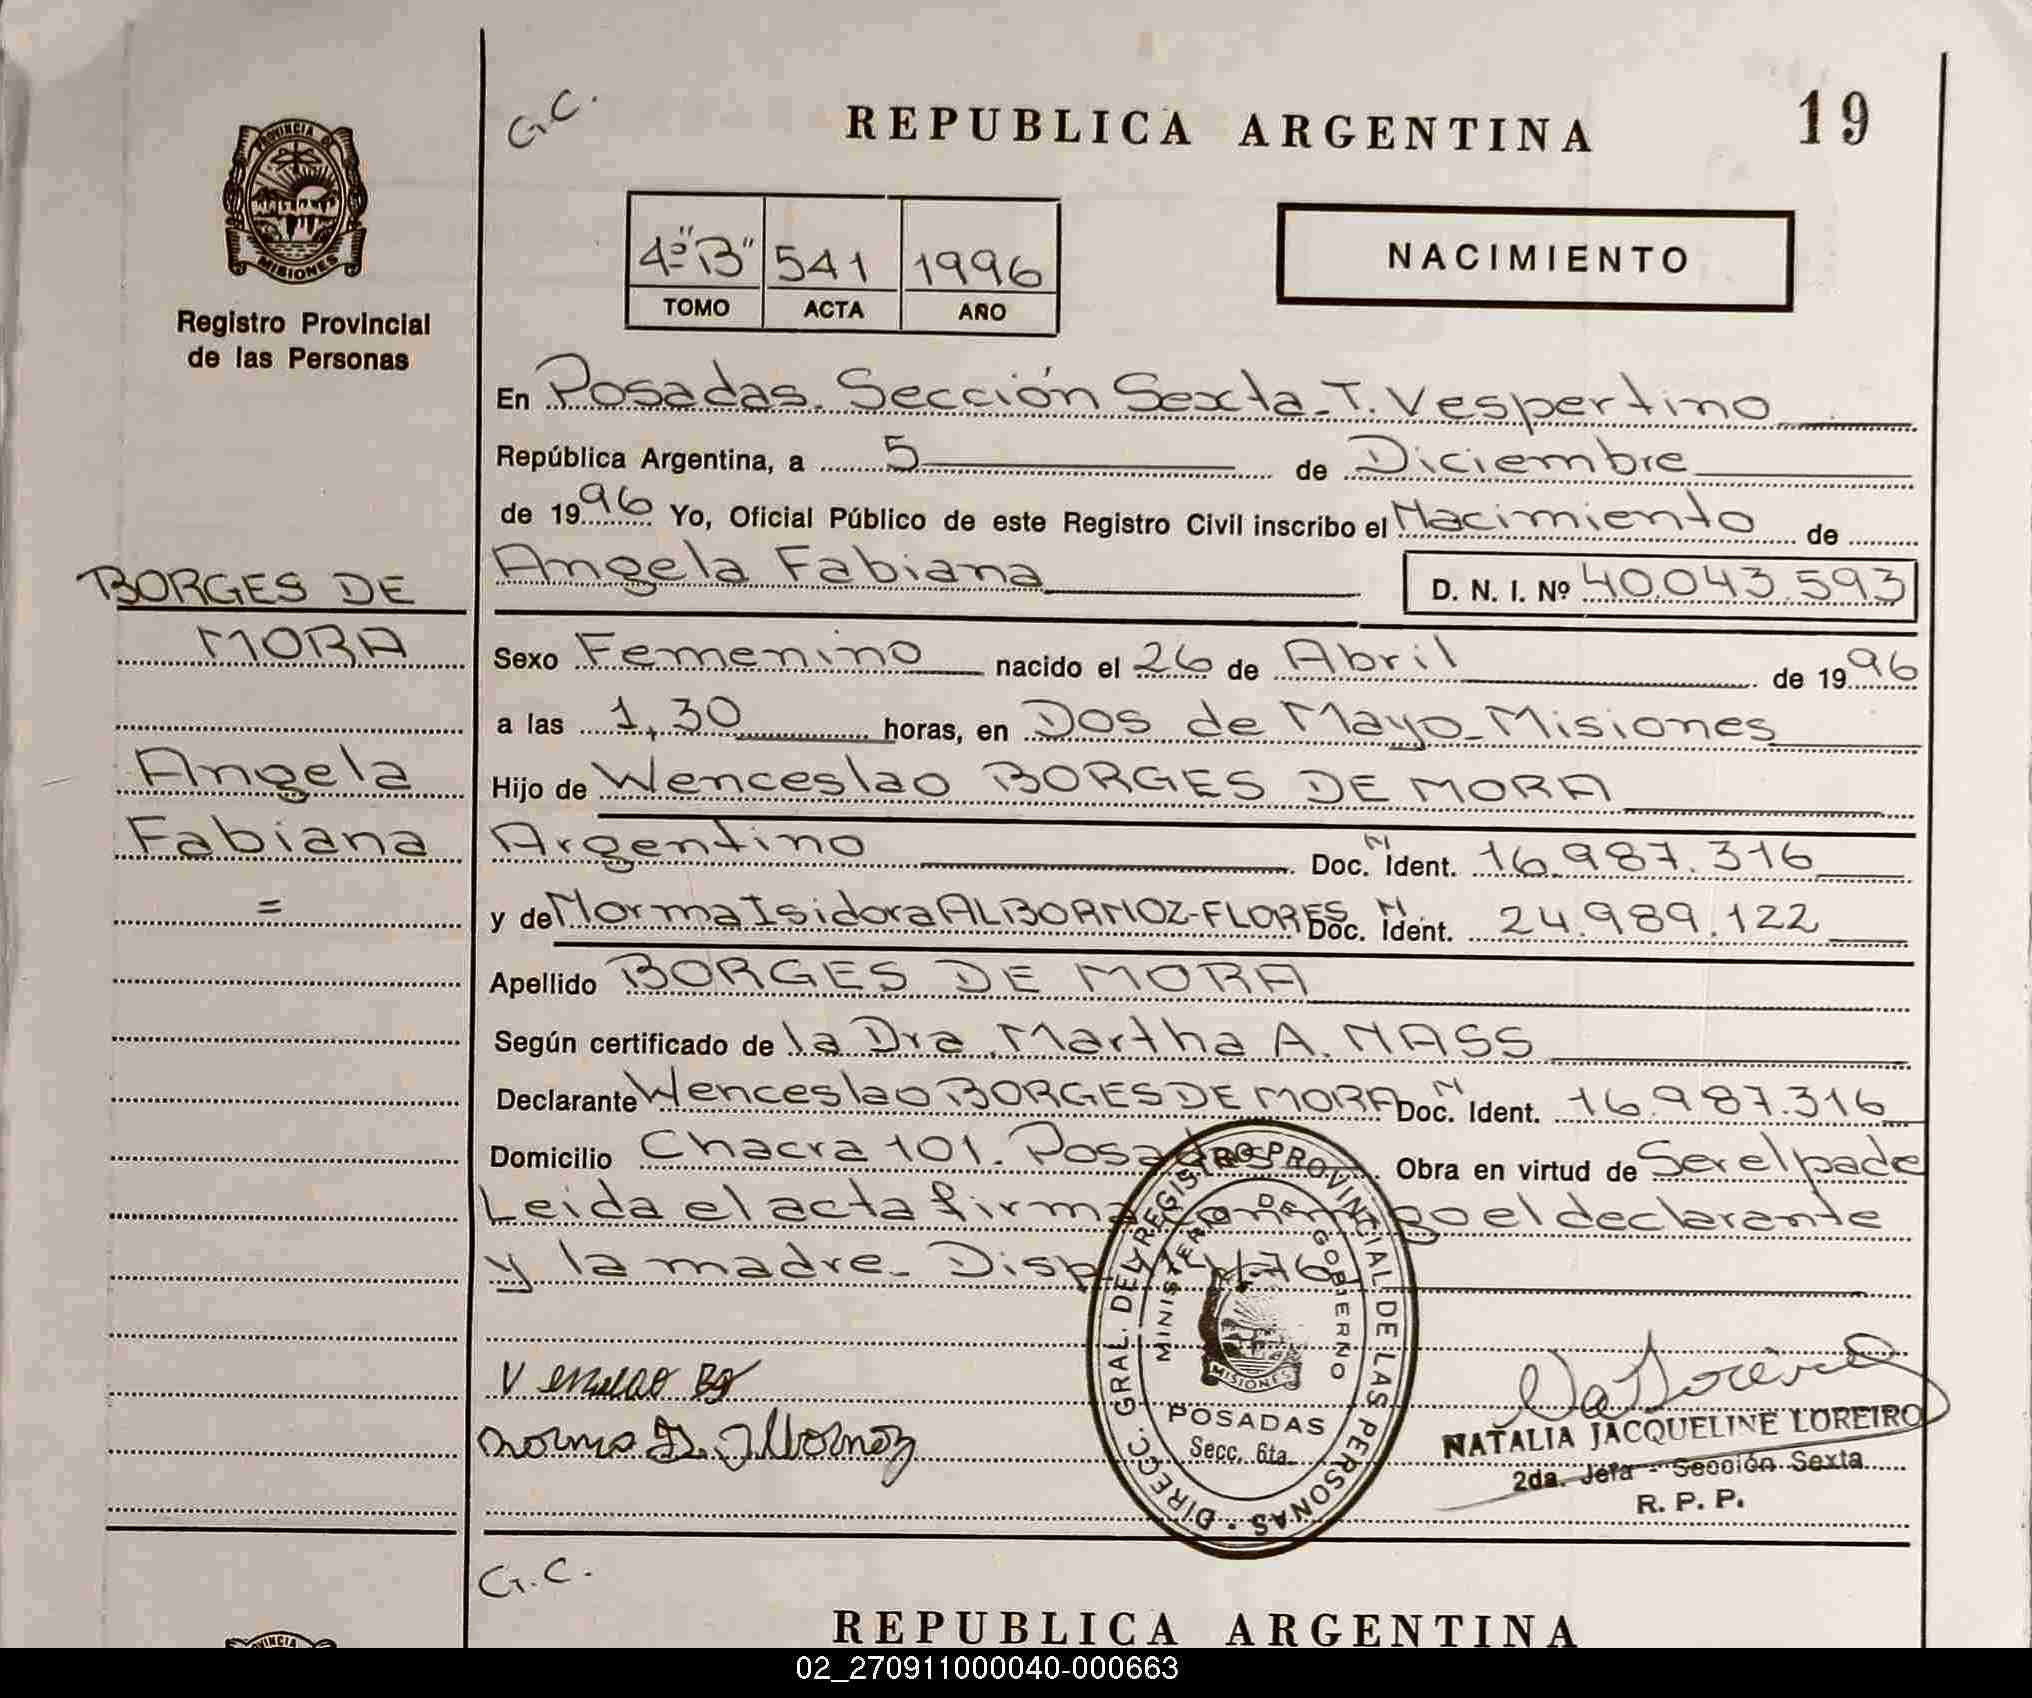 G.C.
REPUBLICA ARGENTINA
19
PROVINCIA DE
MISIONES
Registro Provincial
de las Personas
4º "B" 541 1996
TOMO ACTA AÑO
NACIMIENTO
En Posadas. Sección Sexta_T. Vespertino
República Argentina, a 5 de Diciembre
de 1996 Yo, Oficial Público de este Registro Civil inscribo el Nacimiento de
Angela Fabiana
D. N. I. Nº 40.043.593
BORGES DE
MORA
Angela
Fabiana
=
Sexo Femenino nacido el 26 de Abril de 1996
a las 1,30 horas, en Dos de Mayo_Misiones
Hijo de Wenceslao BORGES DE MORA
Argentino Doc. N Ident. 16.987.316
y de Norma Isidora ALBORNOZ-FLORES Doc. N Ident. 24.989.122
Apellido BORGES DE MORA
Según certificado de la Dra. Martha A. NASS
Declarante Wenceslao BORGES DE MORA Doc. N Ident. 16.987.316
Domicilio Chacra 101. Posadas. Obra en virtud de Ser el padre
Leida el acta firma conmigo el declarante
y la madre_ Disp.
DIRECC. GRAL. DEL REGISTRO PROVINCIAL DE LAS PERSONAS
MINISTERIO DE GOBIERNO
MISIONES
POSADAS
Secc. 6ta.
Norma I. Albornoz
NATALIA JACQUELINE LOREIRO
2da. Jefa - Sección Sexta
R. P. P.
G.C.
REPUBLICA ARGENTINA
02_270911000040-000663